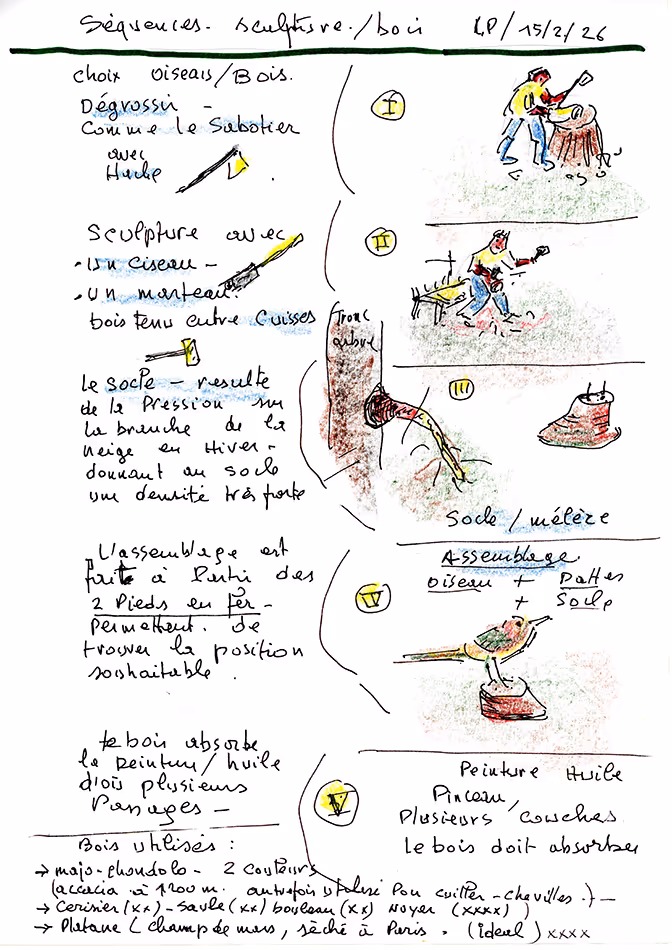 Séquences. sculpture./bois LP/15/2/26
choix oiseau/Bois.
Dégrossir -
comme le Sabotier
avec
Hache
I
Sculpture avec
• un ciseau -
• un marteau.
bois tenu entre Cuisses
II
Tronc
arbre
III
Le socle - resulte
de la Pression sur
la branche de la
neige en Hiver -
donnant au socle
une densité très forte
Socle / mélèze
L'assemblage est
faite à Partir des
2 Pieds en fer -
Permettent. de
trouver la position
souhaitable.
Assemblage
oiseau + Pattes
+ Socle
le bois absorbe
la peinture/huile
d'où plusieurs
Passages -
V
Peinture Huile
Pinceau,
Plusieurs couches
Le bois doit absorber
Bois utilisés :
→ - 2 couleurs
(accacia à m. autrefois utilisé Pour - chevilles.) -
→ Cerisier (xx) - Saule (xx) bouleau (xx) Noyer (xxxx)
→ Platane (champ de mars, séché à Paris. (ideal) xxxx